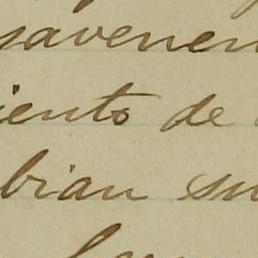 savenen
ients de
bian su